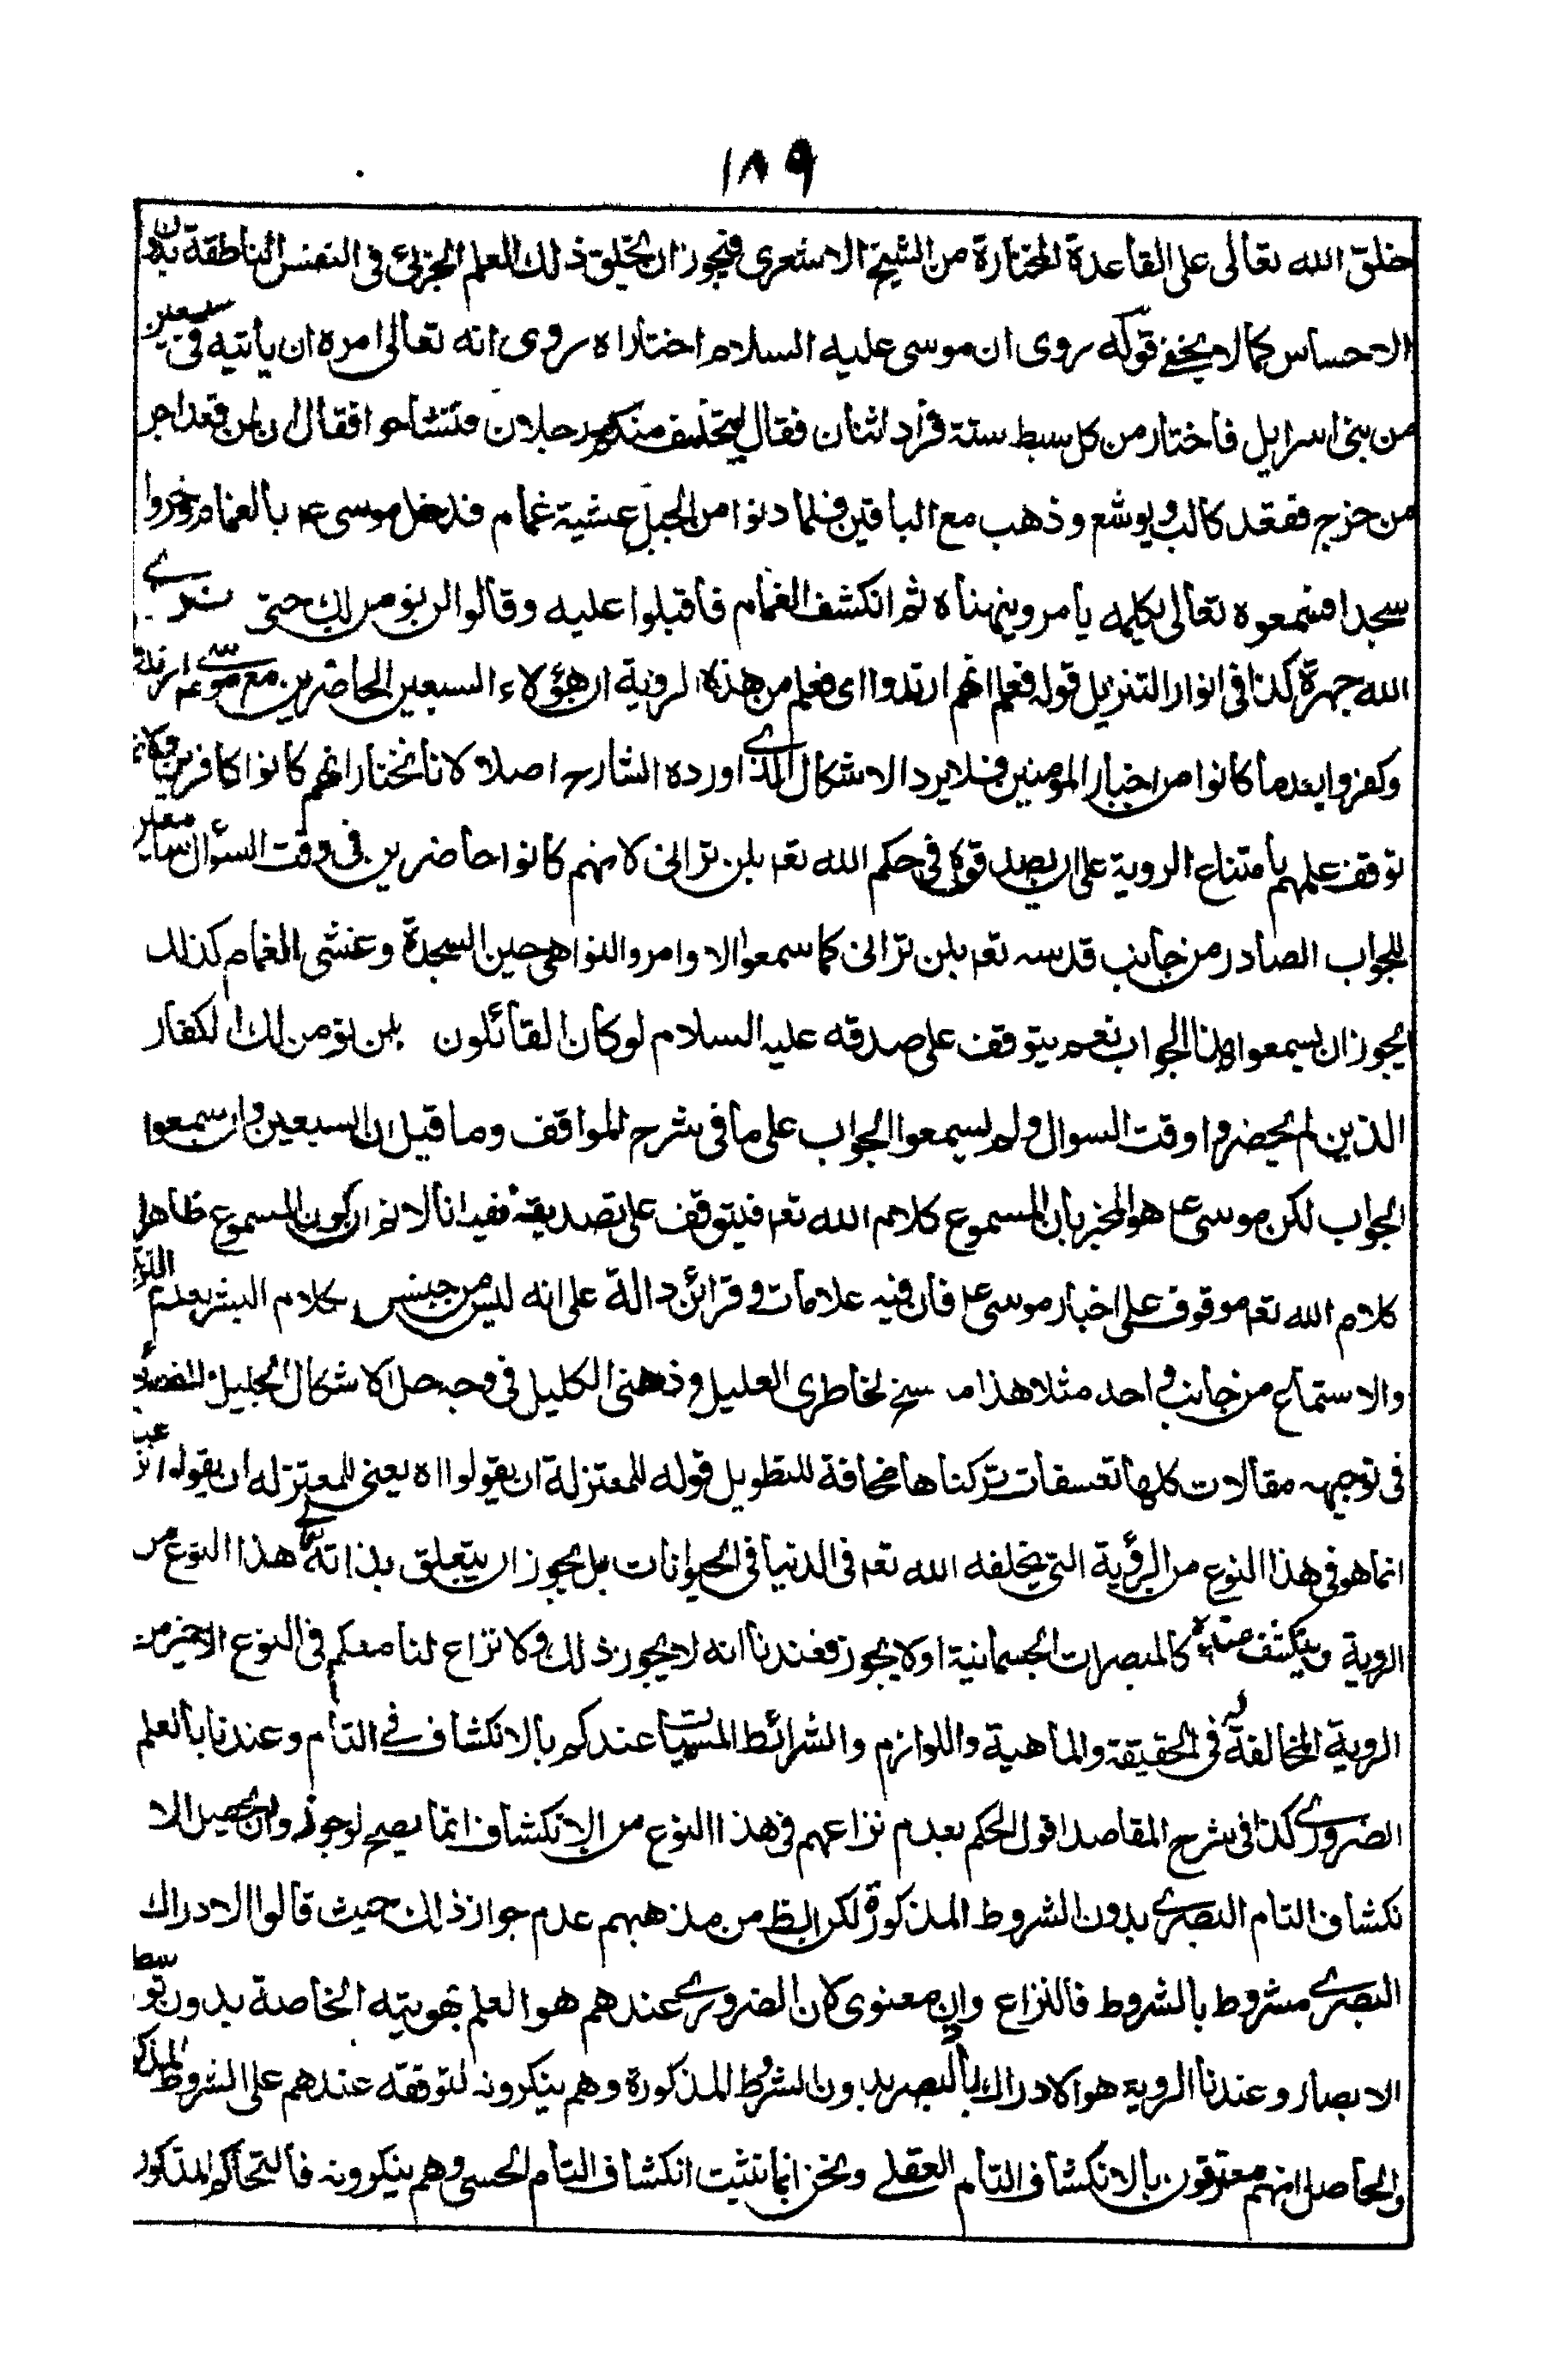 ١٨٩
خلق الله تعالى على القاعدة المختارة من الشيخ الاشعرى فيجوز ان يخلق ذلك العلم الجزئى فى النفس الناطقة بدون
الاحساس كما لا يخفى قوله روى ان موسى عليه السلام اختاراه روى انه تعالى امره ان يأتيه فى سبعين
من بنى اسرايل فاختار من كل سبط ستة فزاد اثنان فقال ليتخلف منكم رجلان فتشاحوا فقال ان لمن قعد اجر
من خرج فقعد كالب ويوشع وذهب مع الباقين فلما دنوا من الجبل غشيه غمام فدخل موسى ع م بالغمام وخروا
سجدا فسمعوه تعالى يكلمه يأمره وينهاه ثم انكشف الغمام فأقبلوا عليه وقالوا لن نؤمن لك حتى نرى
الله جهرة كذا فى انوار التنزيل قوله فعلم انهم ارتدوا اى فعلم من هذه الروية ان هؤلاء السبعين الحاضرين مع موسى ع م
وكفروا بعد ما كانوا من اخيار المومنين فلا يرد الاشكال الذى اورده الشارح اصلا لانا نختار انهم كانوا كافرين
توقف علمهم بامتناع الروية على ان يصدقوه فى حكم الله تعم بلن ترانى لانهم كانوا حاضرين فى وقت السؤال سامعين
للجواب الصادر من جانب قدسه تعم بلن ترانى كما سمعوا الاوامر والنواهى حين السجدة وغشى الغمام كذلك
يجوز ان يسمعوا هذا الجواب نعم يتوقف على صدقه عليه السلام لو كان القائلون بلن نؤمن لك الكفار
الذين لم يحضروا وقت السوال ولم يسمعوا الجواب على ما فى شرح المواقف وما قيل ان السبعين وان سمعوا
الجواب لكن موسى ع م هو المخبر بان المسموع كلام الله تعم فيتوقف على تصديقه ففيه انا لانم ان كون المسموع ظاهرا
كلام الله تعم موقوف على اخبار موسى ع م فان فيه علامات وقرائن دالة على انه ليس من جنس كلام البشر بعدم
والاستماع من جانب واحد مثلا هذا ما سنح لخاطرى العليل وذهنى الكليل فى وجه حل الاشكال الجليل
فى توجيهه مقالات كلها تعسفات تركناها مخافة للتطويل قوله للمعتزلة ان يقولوا اه يعنى للمعتزله ان يقولوا
انما هو فى هذا النوع من الرؤية التى يخلقه الله تعم فى الدنيا فى الحيوانات بل يجوز ان يتعلق بذاته تعالى هذا النوع من
الروية وينكشف عنه كالمبصرات الجسمانية او لا يجوز فعندنا انه لا يجوز ذلك ولا نزاع لنا معكم فى النوع الاخير من
الروية المخالفة له فى الحقيقة والماهية واللوازم والشرائط المسميات عندكم بالانكشاف التام وعندنا بالعلم
الضرورى كذا فى شرح المقاصد اقول الحكم بعدم نزاعهم فى هذا النوع من الانكشاف انما يصح لو جوزوا ان يحصل الا
نكشاف التام البصرى بدون الشروط المذكورة لكن الظ من مذهبهم عدم جواز ذلك حيث قالوا الادراك
البصرى مشروط بالشروط فالنزاع معنوى لان الضرورى عندهم هو العلم بهويته الخاصة بدون توسط
الابصار وعندنا الروية هو الادراك بالبصر بدون الشروط المذكورة وهم ينكرونه لتوقفه عندهم على الشروط
والحاصل انهم معترفون بالانكشاف التام العقلى ونحن انما نثبت انكشاف التام الحسى وهم ينكرونه فالتحاكم المذكور